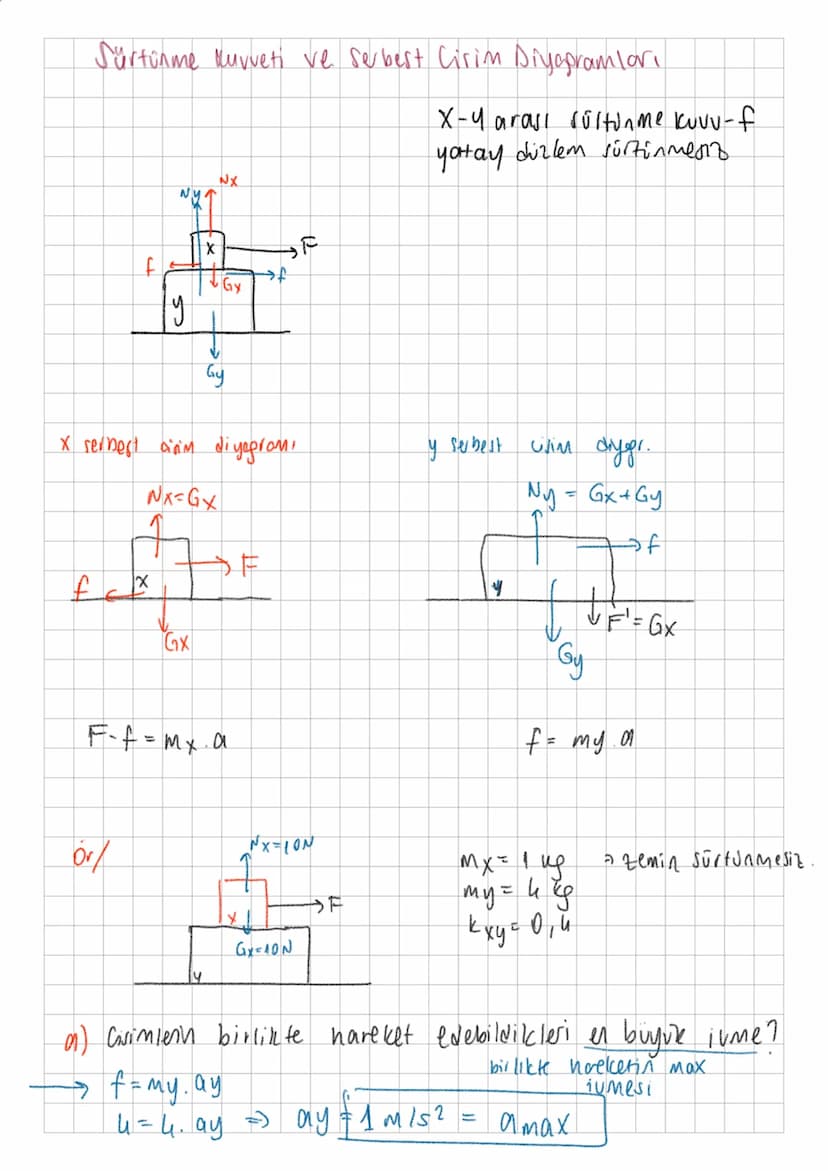 Sürtünme Kuvveti ve Serbest Cisim Diyagramları
X-Y arası sürtünme kuvv-f
yatay düzlem sürtünmesiz
Nx
Ny
x
F
f
f
Gx
y
Gy
x serbest cisim diyagramı
y serbest cisim diyagr.
Nx=Gx
Ny = Gx+Gy
F
f
x
f
y
F'= Gx
Gx
Gy
F-f = mx.a
f = my.a
Ör/
Nx=10N
mx = 1 kg → zemin sürtünmesiz.
F
my = 4 kg
x
kxy = 0,4
Gx=10N
y
a) Cisimlerin birlikte hareket edebildikleri en büyük ivme?
birlikte hareketin max
ivmesi
→ f = my.ay
4 = 4. ay ⇒ ay = 1 m/s² = amax